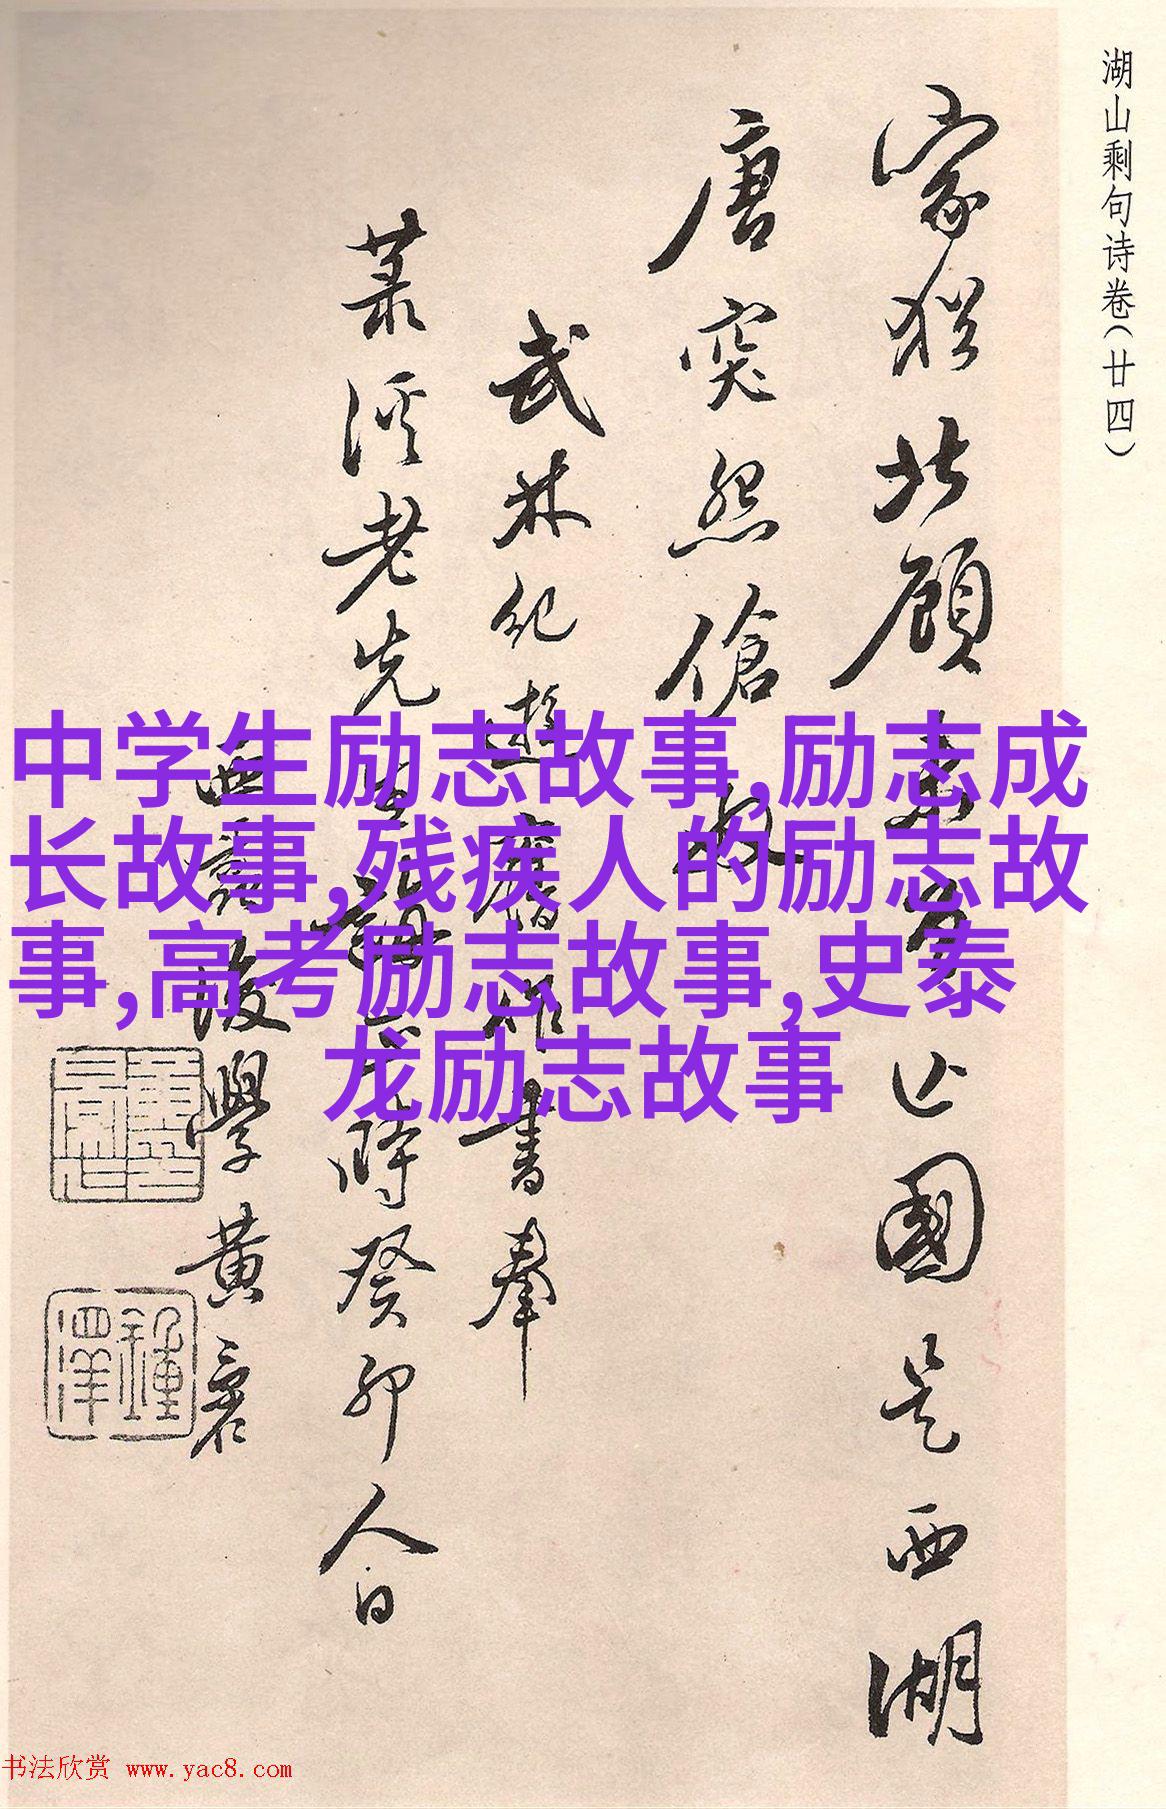 湖山剩句诗卷(廿四)
家犹北顾
亡国是西湖
唐突然傖父
武林纪遊舊作書奉
菉溪老先生
時癸卯人日
後學黄衮
中学生励志故事,励志成
长故事,残疾人的励志故
事,高考励志故事,史泰
龙励志故事
书法欣赏 www.yac8.com